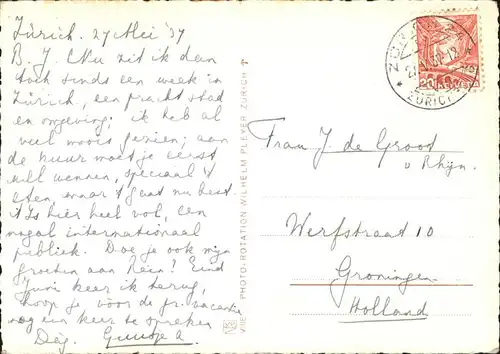 Zürich. 27 Mei '37
B. J. Nu zit ik dan
toch sinds een week in
Zürich, een pracht stad
en omgeving; ik heb al
veel moois gezien; aan
de kuur moet je eerst
wat wennen, speciaal 't
eten, maar 't gaat nu best.
't Is hier heel vol, een
nogal internationaal
publiek. Doe je ook mijn
groeten aan Rein? Eind
Juni keer ik terug,
hoop je vóór de gr. vacantie
nog een keer te spreken
Dag.
VIII.
PHOTO-ROTATION WILHELM PLEYER ZÜRICH 7
ZÜRICH
20
Frau J. de Groot
v Rhijn
Werfstraat 10
Groningen
Holland